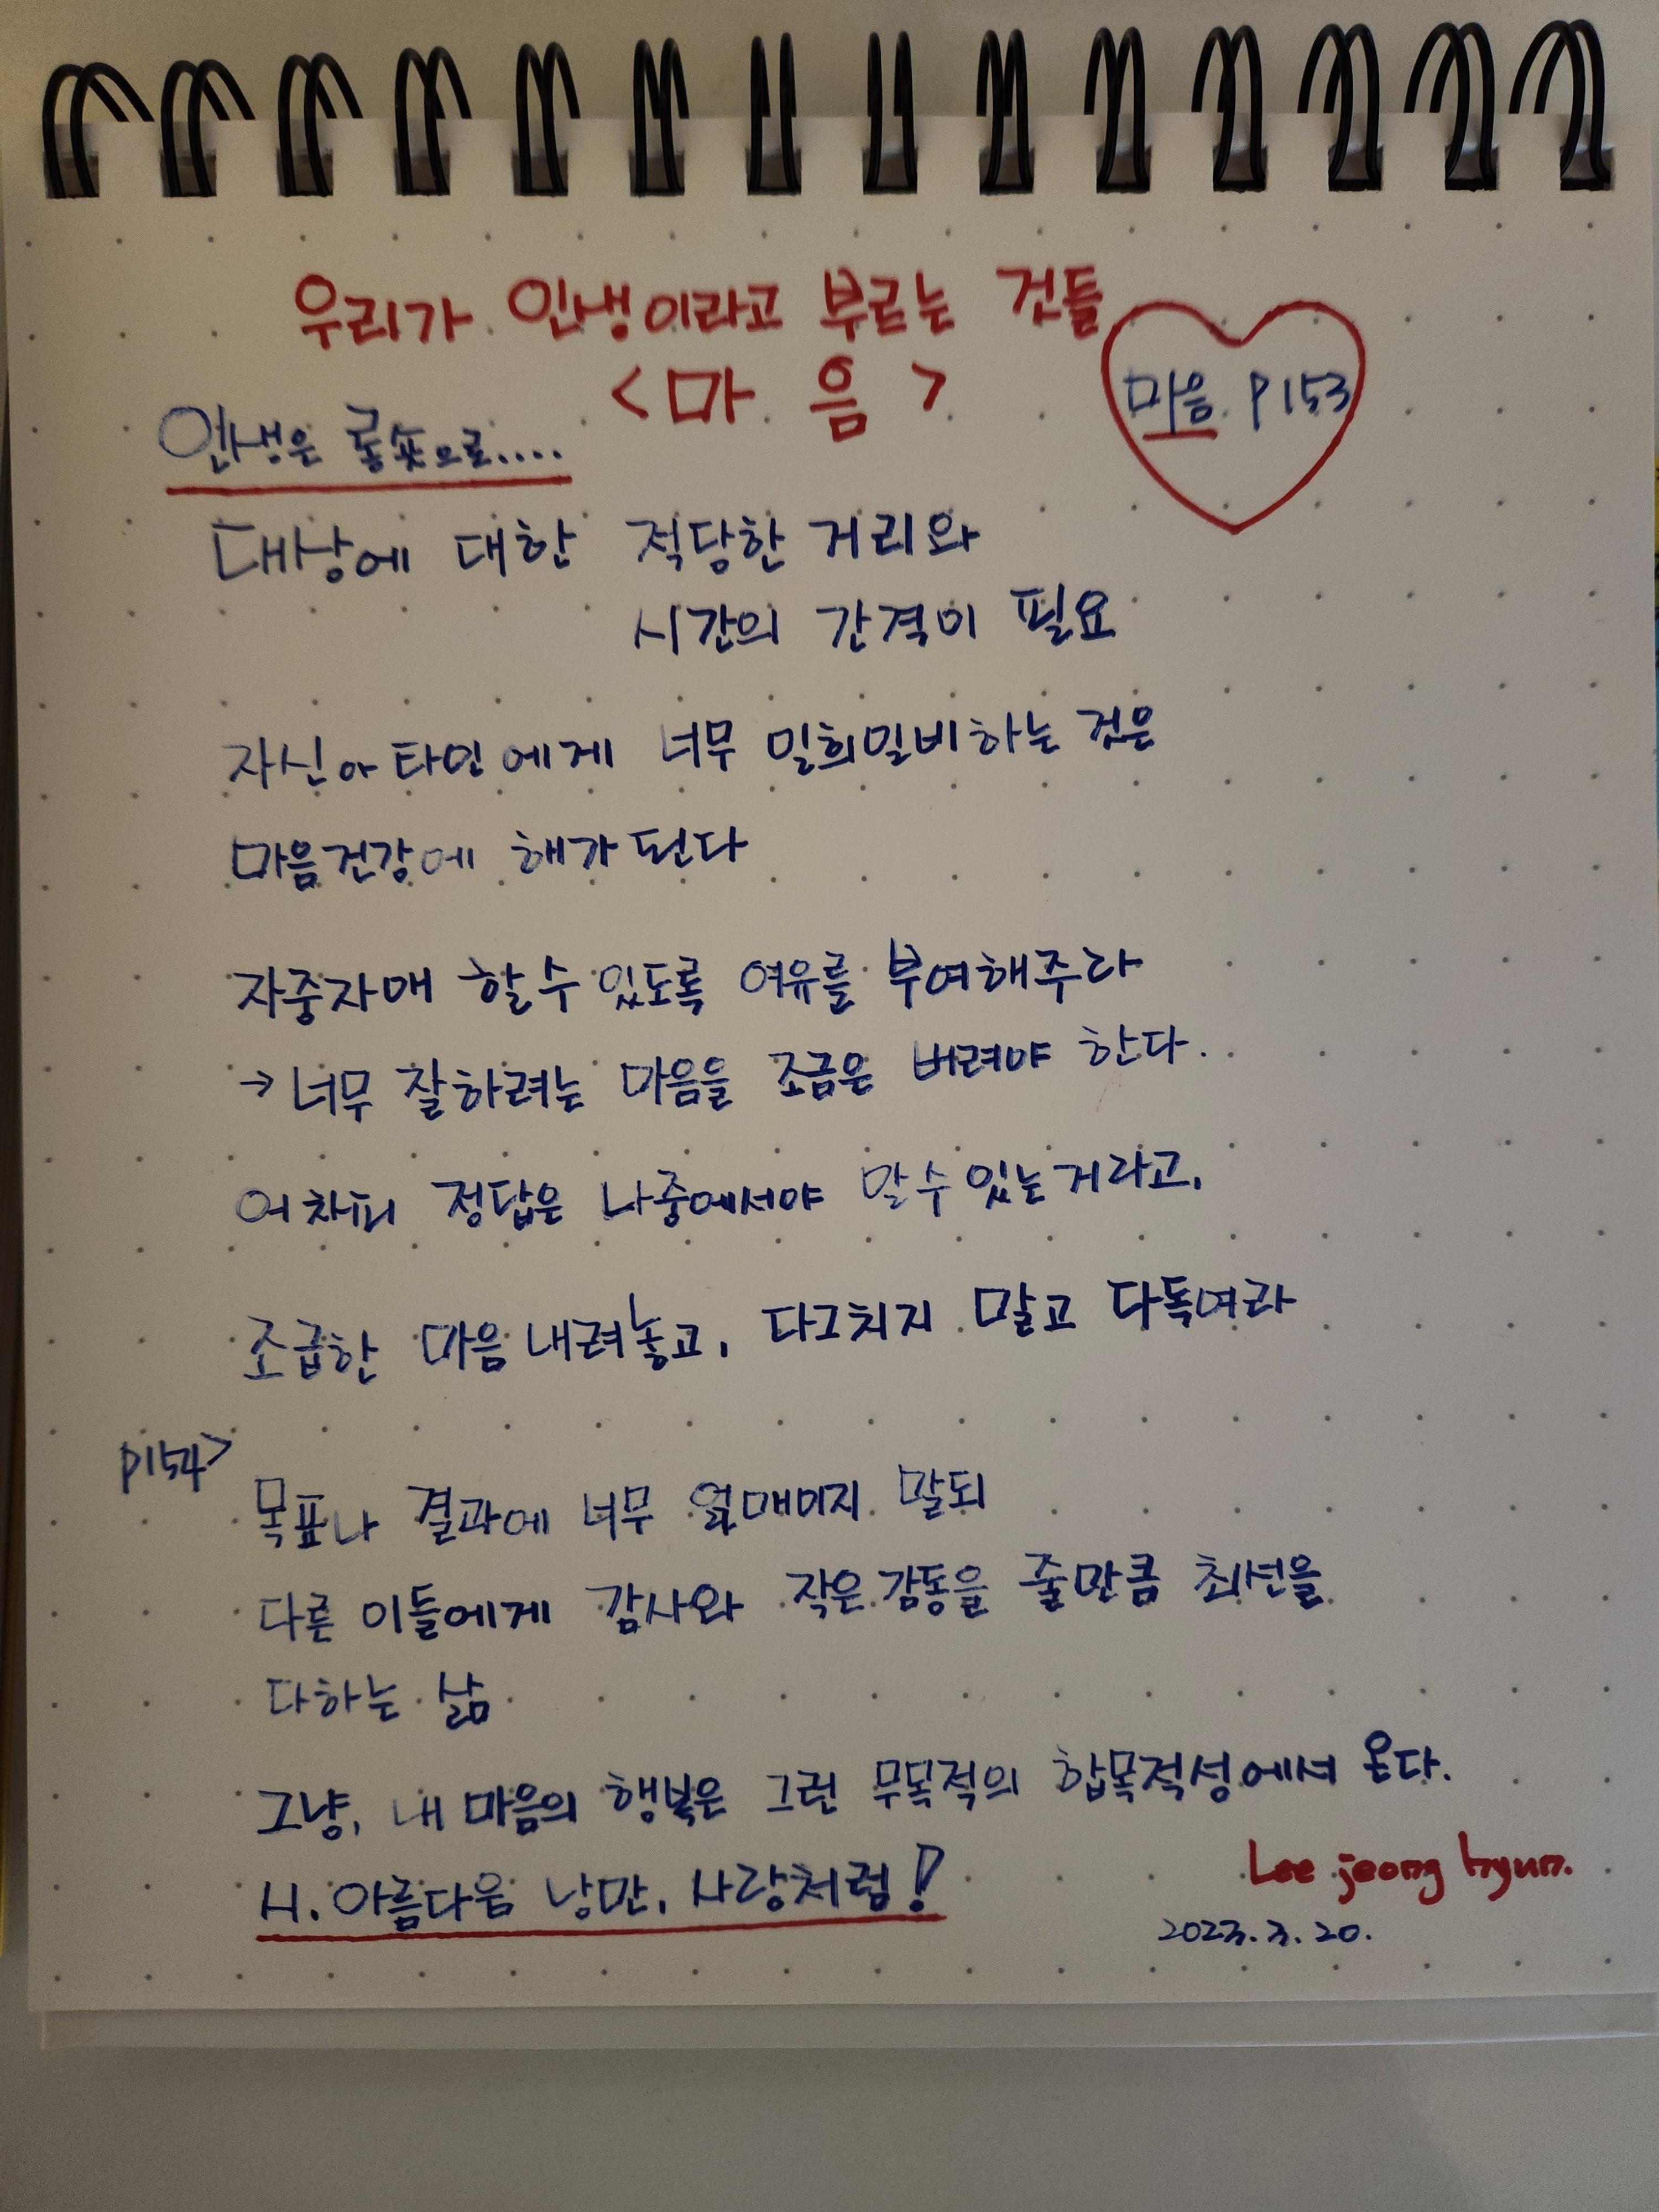 우리가 인생이라고 부르는 것들
<마 음>
마음 P153
인생은 롱숏으로....
대상에 대한 적당한 거리와
시간의 간격이 필요
자신이나 타인에게 너무 일희일비하는 것은
마음건강에 해가 된다
자중자애 할 수 있도록 여유를 부여해주라
→ 너무 잘하려는 마음을 조금은 버려야 한다.
어차피 정답은 나중에서야 알 수 있는거라고,
조급한 마음 내려놓고, 다그치지 말고 다독여라
P154>
목표나 결과에 너무 얽매이지 말되
다른 이들에게 감사와 작은 감동을 줄만큼 최선을
다하는 삶
그냥, 내 마음의 행복은 그런 무목적의 합목적성에서 온다.
시. 아름다움 낭만, 사랑처럼!
Lee jeong hyun.
2023.3.20.